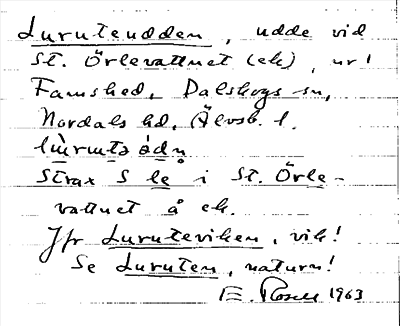 Luruteudden, udde vid
St. Örlevattnet (ek), ur!
Famshed, Dalskogs sn,
Nordals hd, Älvsb. l.
strax S le i St. Örle-
vattnet å ek.
Jfr Luruteviken, vik!
Se Luruten, naturn!
E. 1963